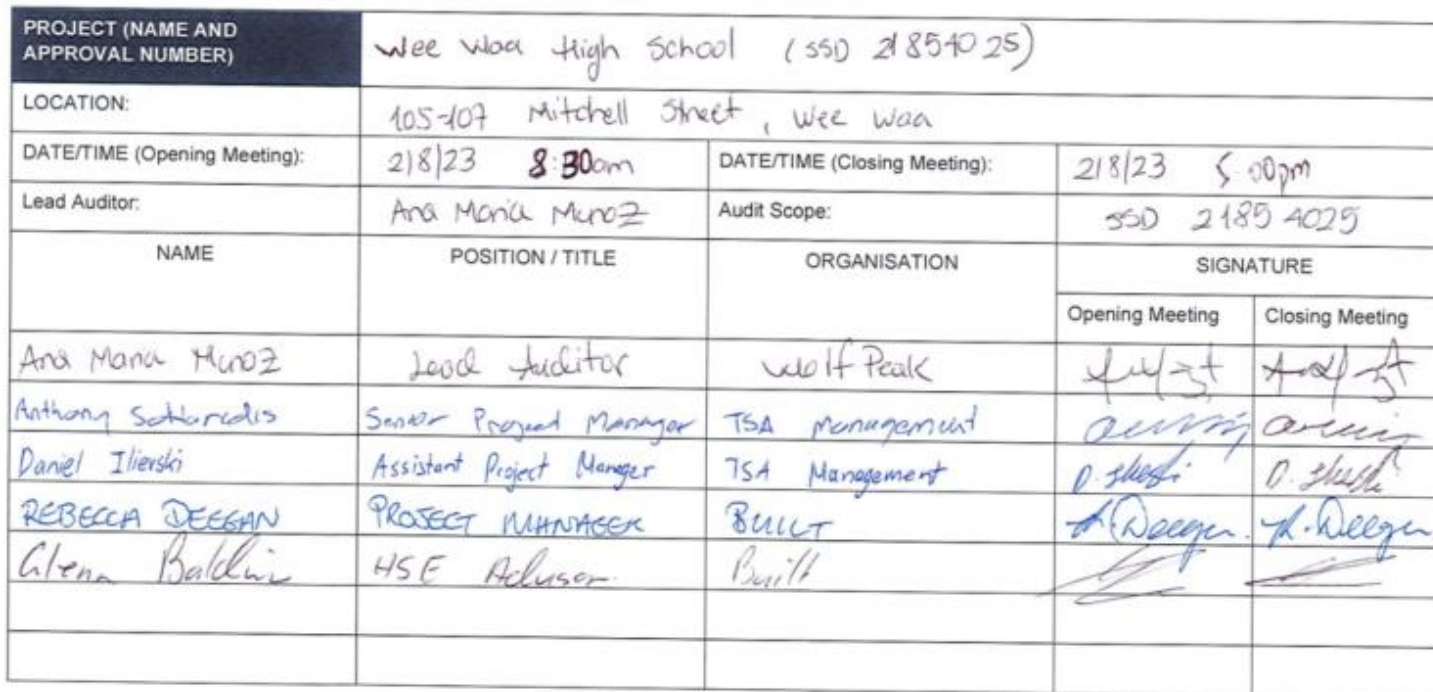 PROJECT (NAME AND APPROVAL NUMBER) Wee Waa High School (SSD 21854025)
LOCATION: 105-107 Mitchell Street, Wee Waa
DATE/TIME (Opening Meeting): 2/8/23 8:30am DATE/TIME (Closing Meeting): 2/8/23 5:00pm
Lead Auditor: Ana Maria Munoz Audit Scope: SSD 21854025
NAME POSITION / TITLE ORGANISATION SIGNATURE
Opening Meeting Closing Meeting
Ana Maria Munoz Lead Auditor WolfPeak
Anthony Senior Project Manager TSA Management
Daniel Ilievski Assistant Project Manager TSA Management D. Ilievski D. Ilievski
REBECCA DEEGAN PROJECT MANAGER BUILT R. Deegan. R. Deegan
Glenn HSE Advisor. Built